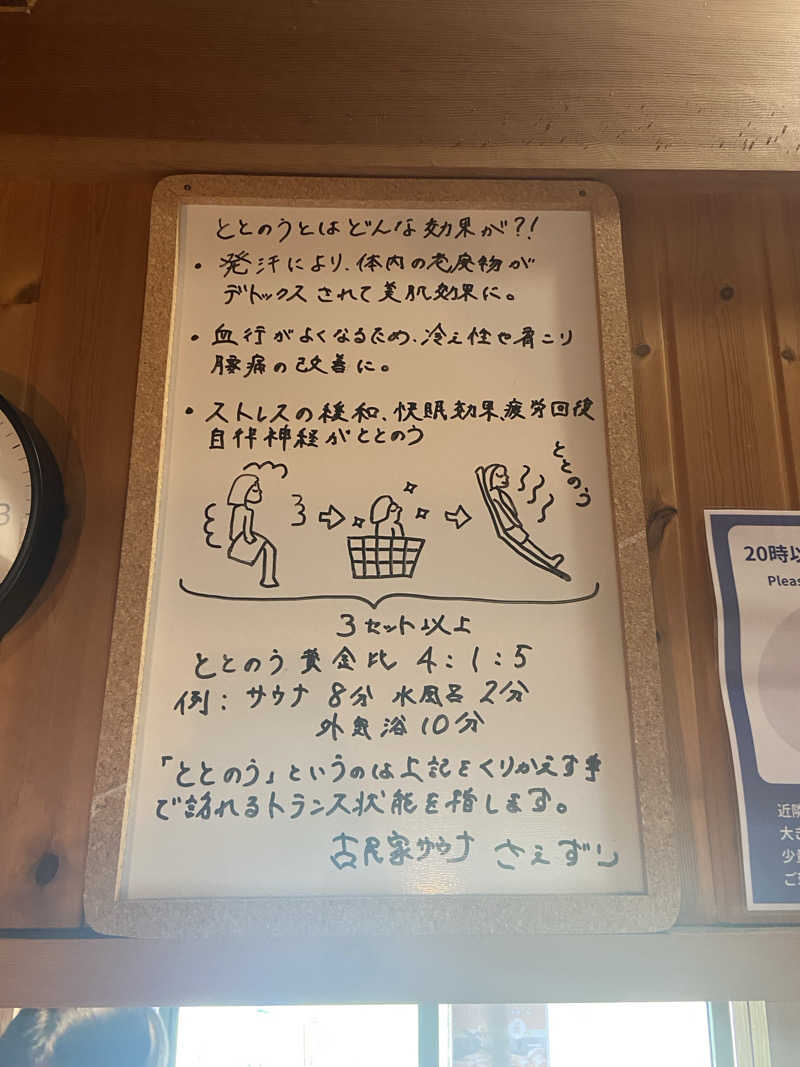 ととのうとはどんな効果が?!
・発汗により、体内の老廃物が
デトックスされて美肌効果に。
・血行がよくなるため、冷え性や肩こり
腰痛の改善に。
・ストレスの緩和、快眠効果、疲労回復
自律神経がととのう
ととのう
3セット以上
ととのう黄金比 4:1:5
例:サウナ 8分 水風呂 2分
外気浴 10分
「ととのう」というのは上記をくりかえす事
で訪れるトランス状態を指します。
古民家サウナ さえずり
20時以
Pleas
近隣
大き
少
ご
3